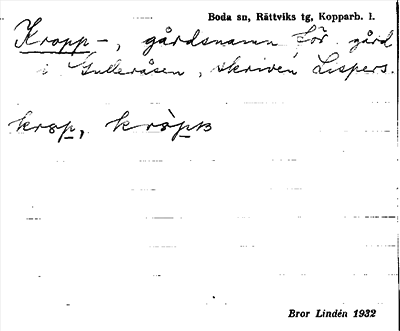 Boda sn, Rättviks tg, Kopparb. l.
Kropp-, gårdsnamn för gård
i Gulleråsen, skriven Lispers.
krop, kròpɴ
Bror Lindén 1932